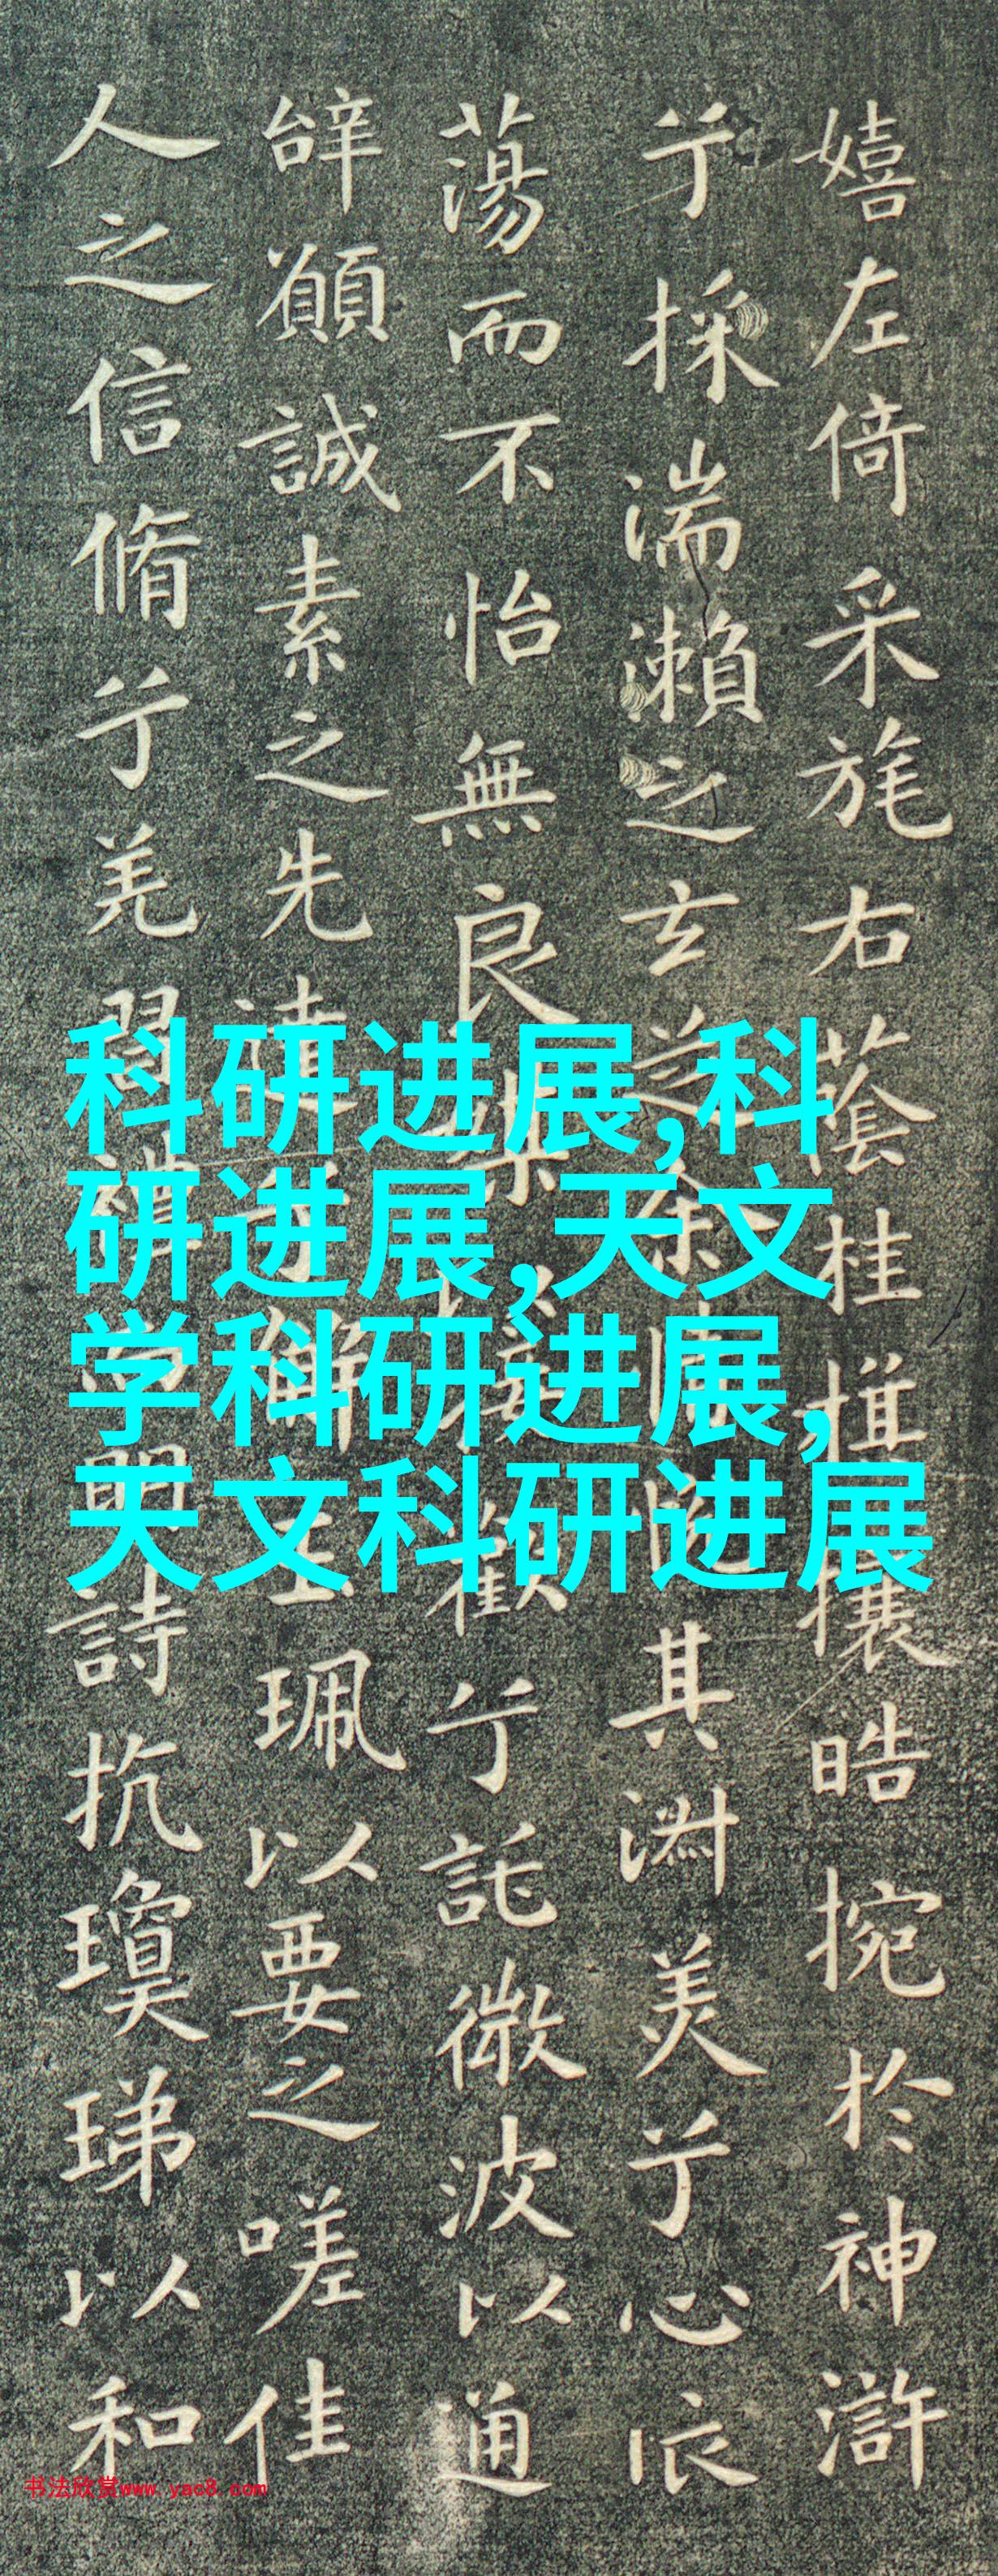 嬉左倚采旄右蔭桂旗攘皓捥於神滸
兮採湍瀨之玄芝余情悅其淑美兮心
蕩而不怡無良媒以接歡兮託微波以通
辭願誠素之先達兮解玉珮以要之嗟佳
人之信脩兮羌習禮而明詩抗瓊珶以和
科研进展,科
研进展,天文
学科研进展,
天文科研进展
书法欣赏www.yac8.com